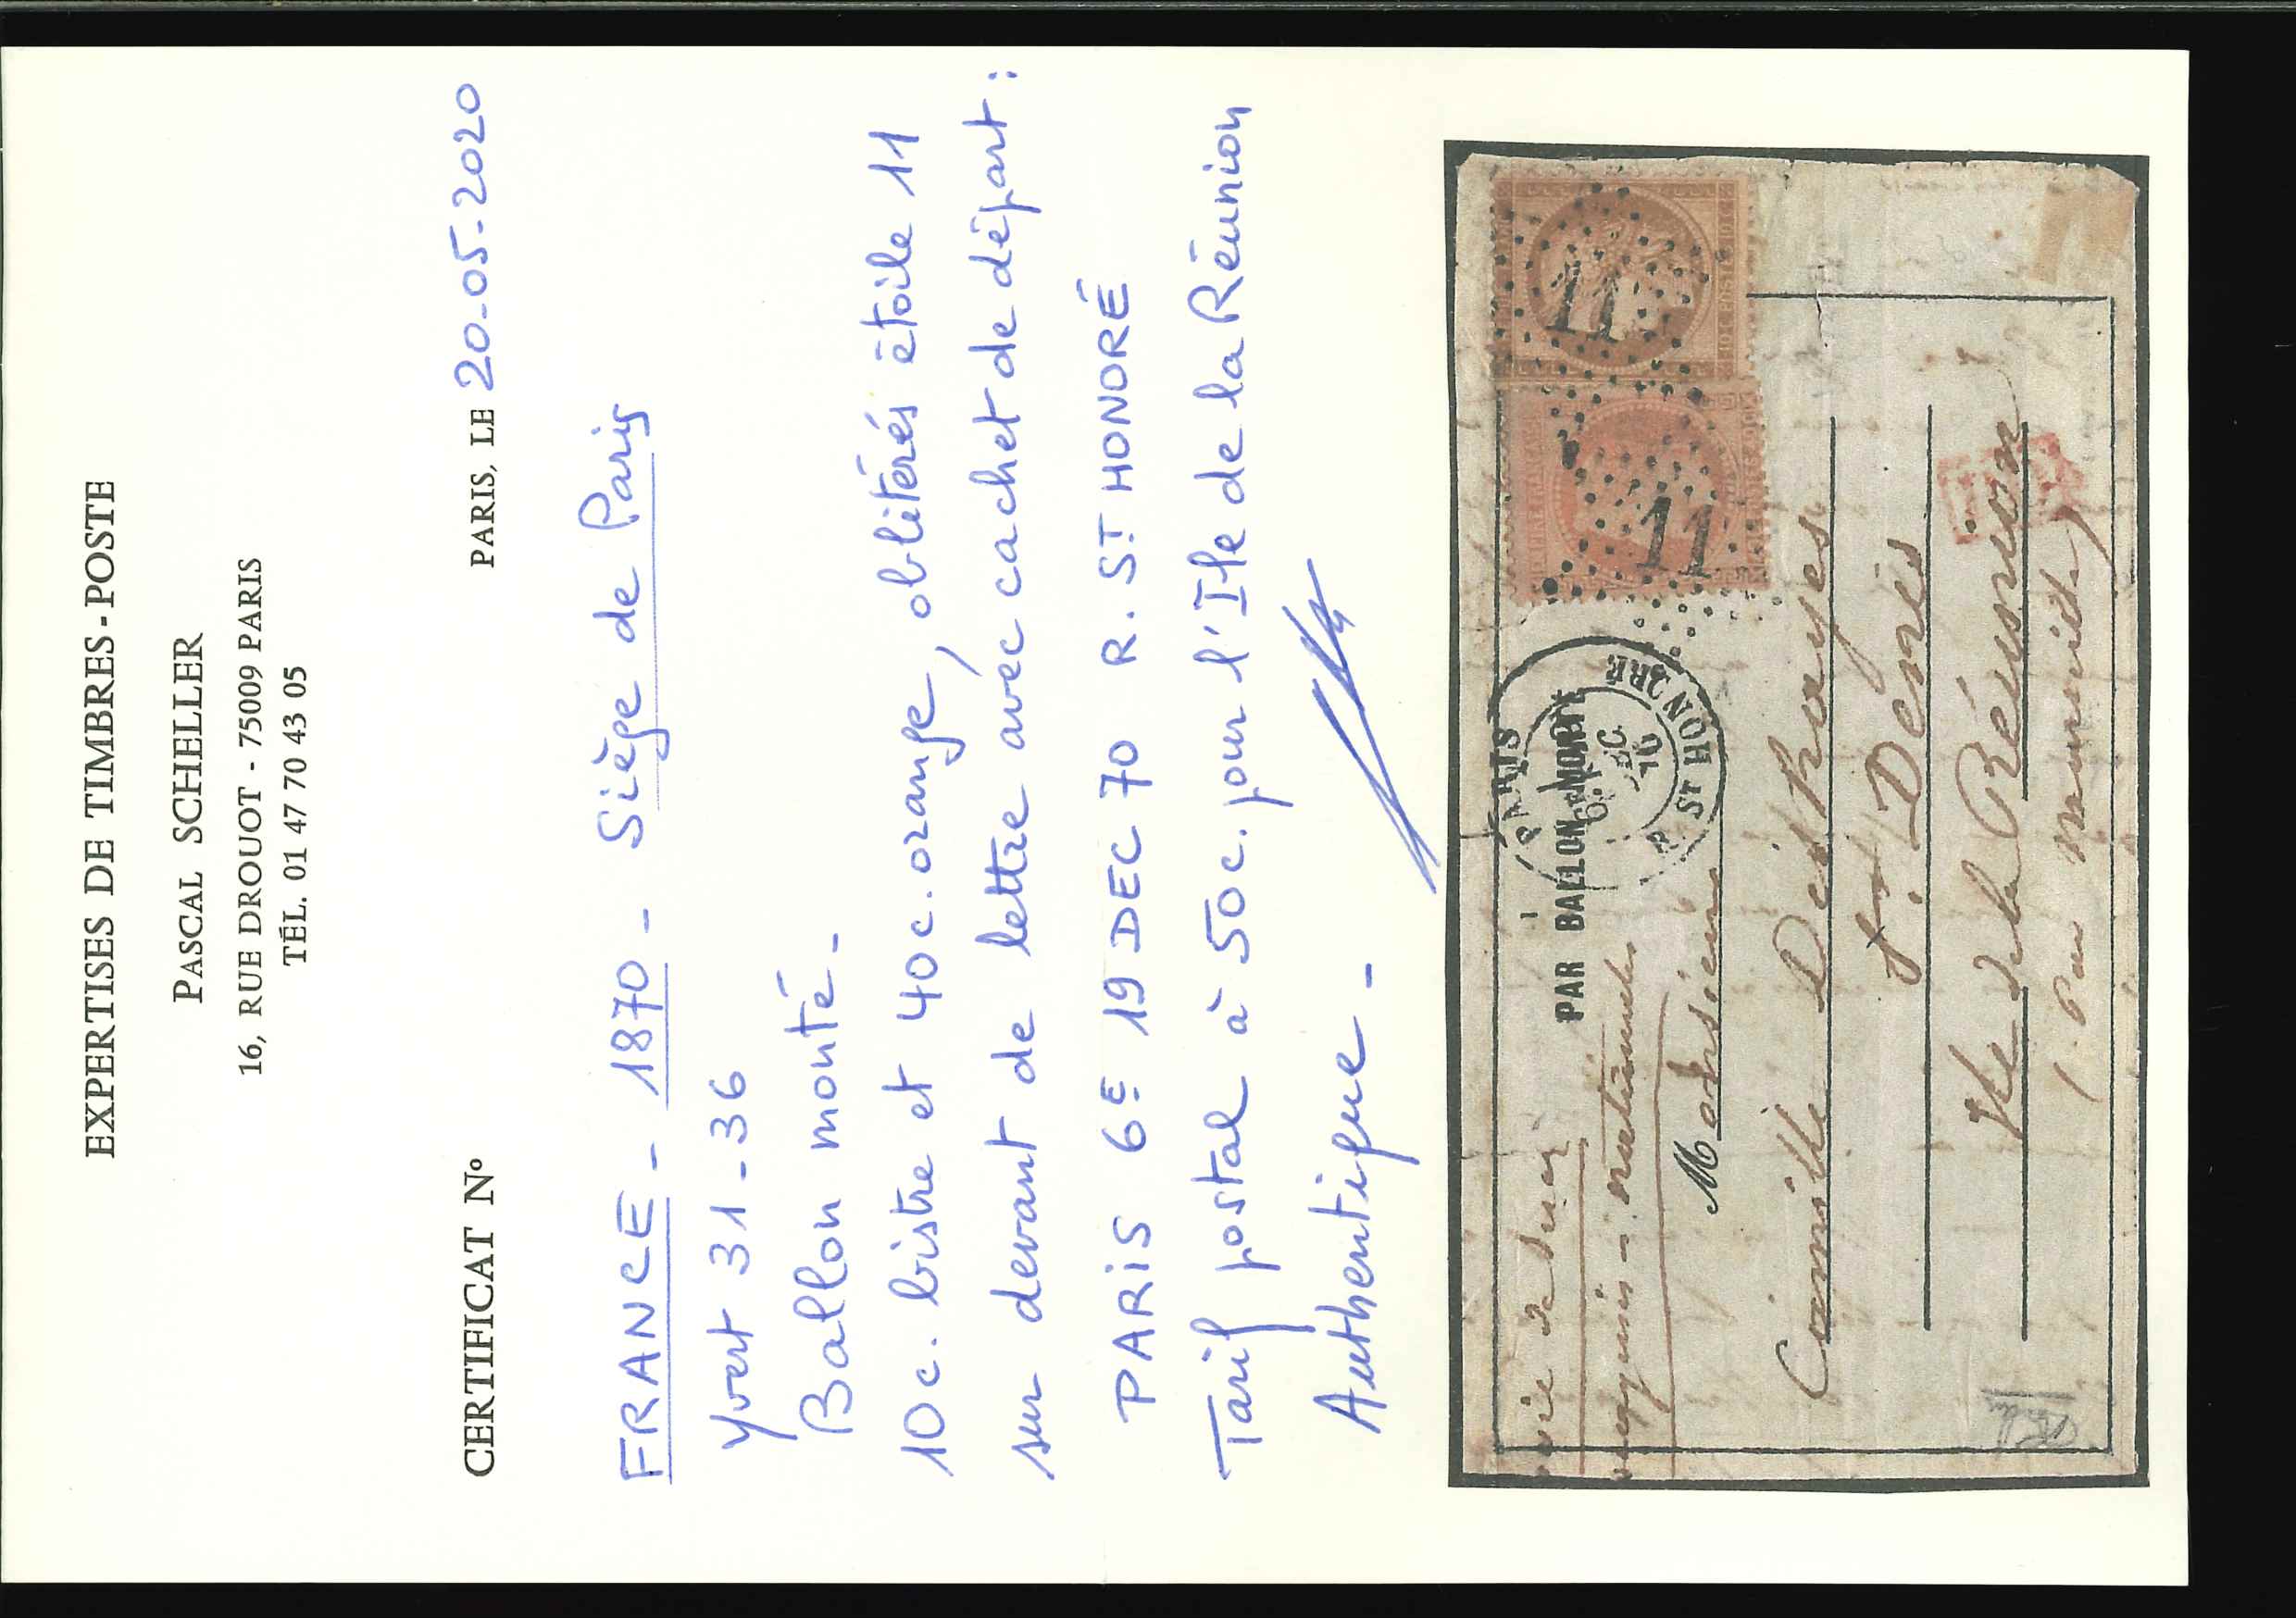 EXPERTISES DE TIMBRES-POSTE
PASCAL SCHELLER
16, RUE DROUOT - 75009 PARIS
TÉL. 01 47 70 43 05
CERTIFICAT Nº
PARIS, LE 20-05-2020
FRANCE - 1870 - Siège de Paris
Yvert 31-36
Ballon monté -
10c. bistre et 40c. orange, oblitérés étoile 11
sur devant de lettre avec cachet de départ :
PARIS 6E 19 DEC 70 R. ST HONORÉ
Tarif postal à 50c. pour l'Ile de la Réunion
Authentique -
11
11
PARIS
R. ST HONORE
PAR BALLON MONTÉ
Monsieur
Camille Deshayes
St. Denis
Ile de la Réunion